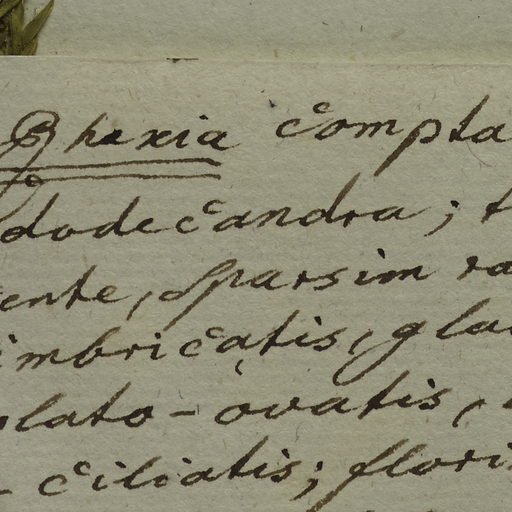 Rhexia compta
dodecandra; t
ente, sparsim ra
imbricatis, gla
olato-ovatis,
- ciliatis; flori